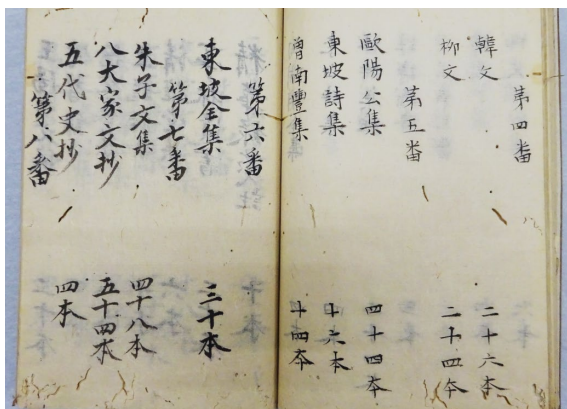 第四番
韓文 二十六本
柳文 二十四本
第五番
歐陽公集 四十四本
東坡詩集 十六本
曾南豐集 十四本
第六番
東坡全集 三十本
第七番
朱子文集 四十八本
八大家文抄 五十四本
五代史抄 四本
第八番